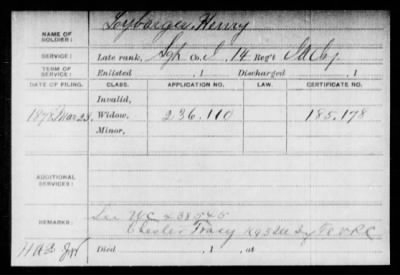 NAME OF SOLDIER: Leybarger, Henry
SERVICE: Late rank, Sgt Co. I, 14 Reg't Pa Cav.
TERM OF SERVICE: Enlisted , 1 Discharged , 1
DATE OF FILING. CLASS. APPLICATION NO. LAW. CERTIFICATE NO.
Invalid,
1878 Mar 23. Widow, 236.110 185.178
Minor,
ADDITIONAL SERVICES:
REMARKS: See WC
Chester Tracy
Died , 1 , at